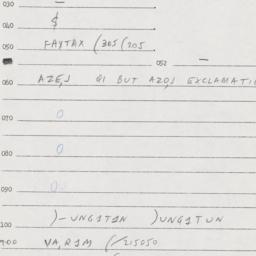 030 —
040 $
050 FAYTAX (305(205
052 —
060 AZE,J GI BUT AZO,J EXCLAMATI
070 0
080 0
090 0
100 )-UNGITIN )UNGITUN
900 VA,RIM (/215050